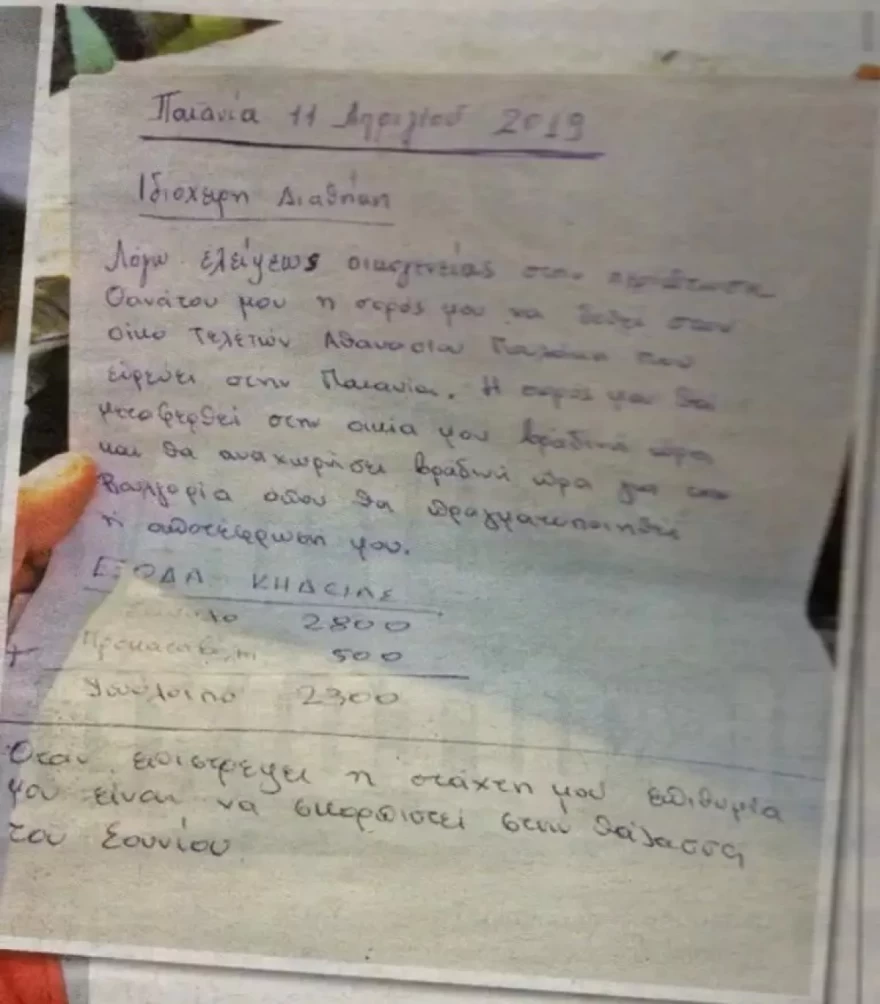 Παιανία 11 Απριλίου 2019
Ιδιόχειρη Διαθήκη
Λόγω ελείψεως οικογενείας στην περίπτωση
Θανάτου μου η σορός μου να δεθεί στον
οίκο Τελετών Αθανασίου που
είρεύει στην Παιανία. Η σορός μου θα
μεταφερθεί στην οικία μου βραδινή ώρα
και θα αναχωρήσει βραδινή ώρα για την
Βουλγαρία οπου θα πραγματοποιηθεί
ή αποτέφρωση μου.
ΕΞΟΔΑ ΚΗΔΕΙΑΣ
Σύνολο 2800
+ Προκαταβολή 500
Υπόλοιπο 2300
Οταν επιστρεψει η στάχτη μου επιθυμία
μου είναι να σκορπιστεί στην θάλασσα
του Σουνίου